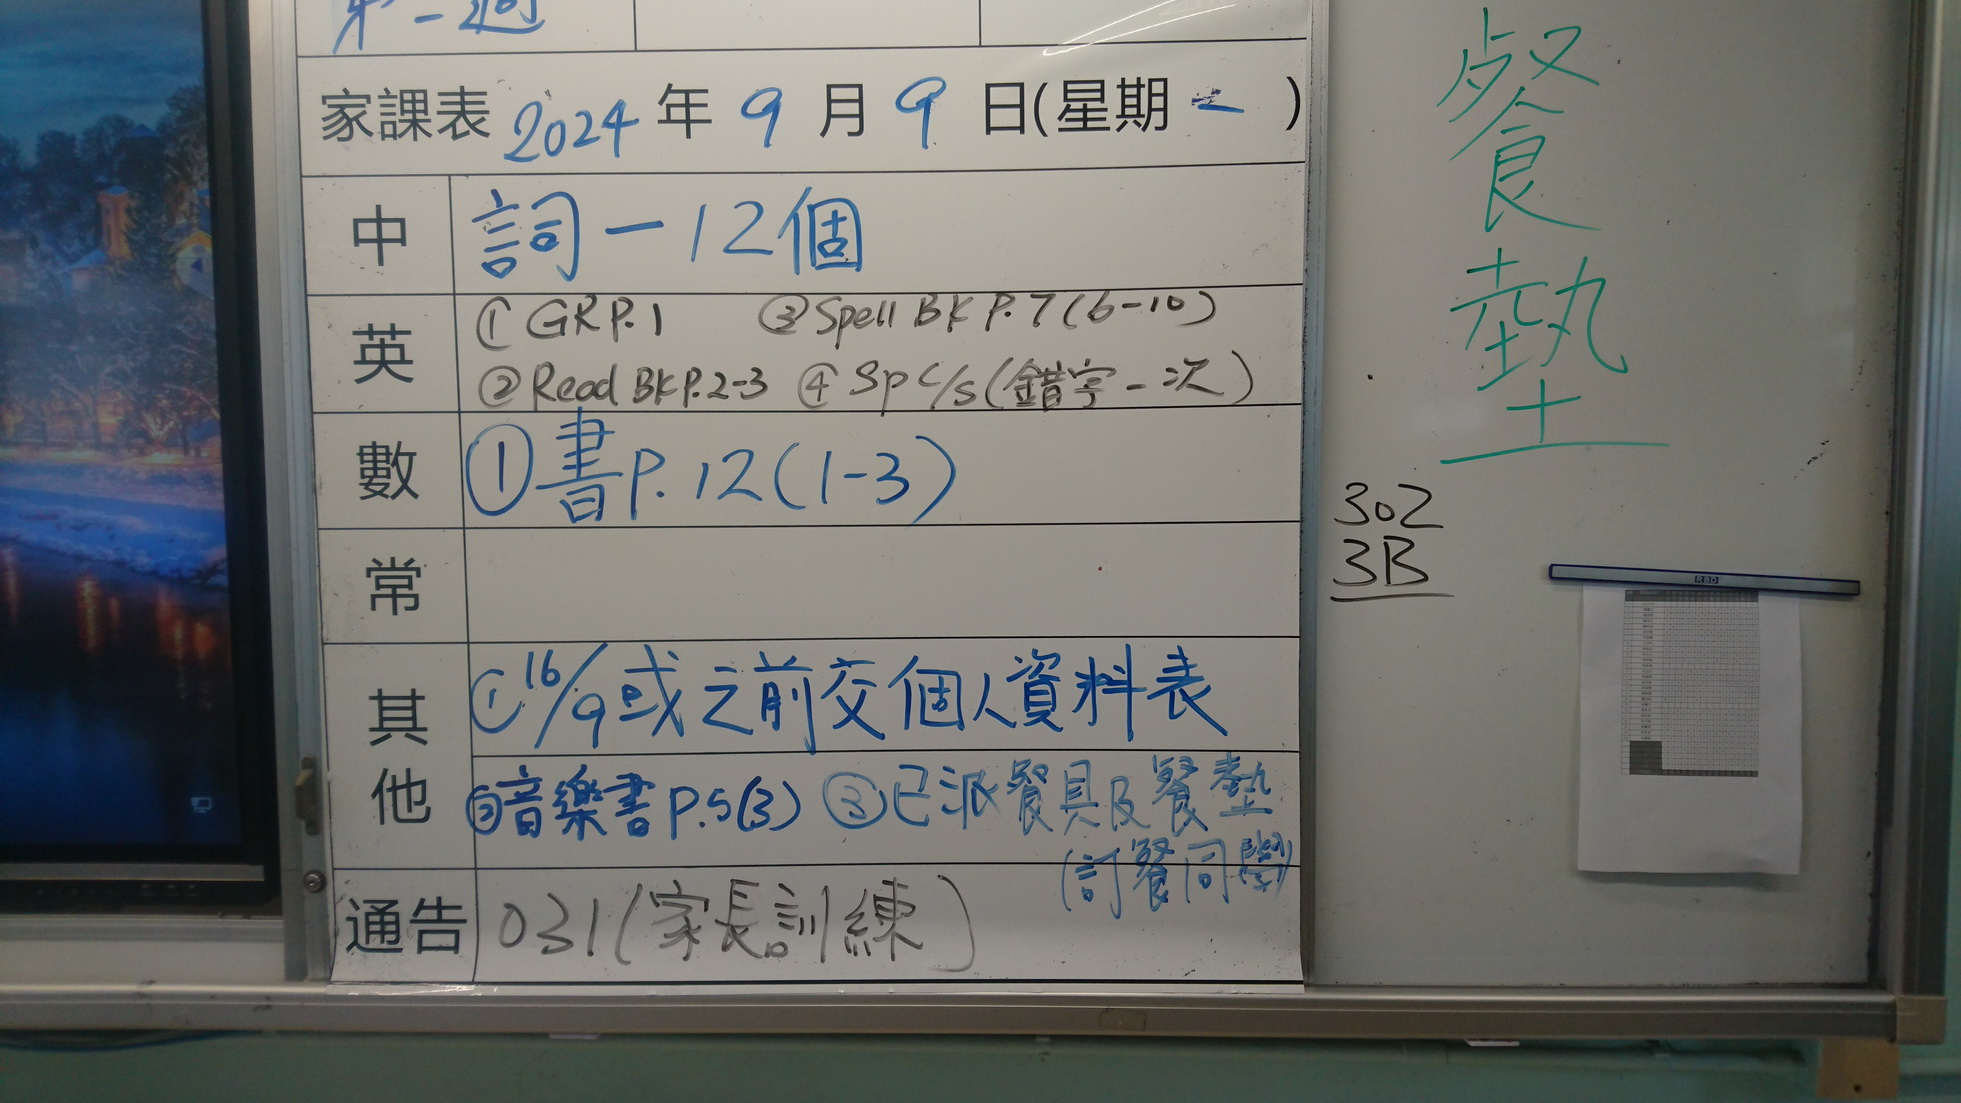 第一週
家課表 2024 年 9 月 9 日(星期一)
中 詞一12個
英 ① GR P.1 ③ Spell BK P.7 (6-10)
② Read BK P.2-3 ④ Sp C/S (錯字一次)
數 ① 書P.12(1-3)
常
其他 ① 16/9或之前交個人資料表
②音樂書P.5(3) ③已派餐具及餐墊
(訂餐同學)
通告 031(家長訓練)
餐墊
302
3B
RBD